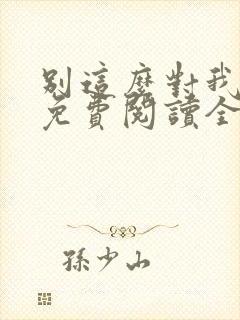 別這麼對我
免費閱讀全
孫少山